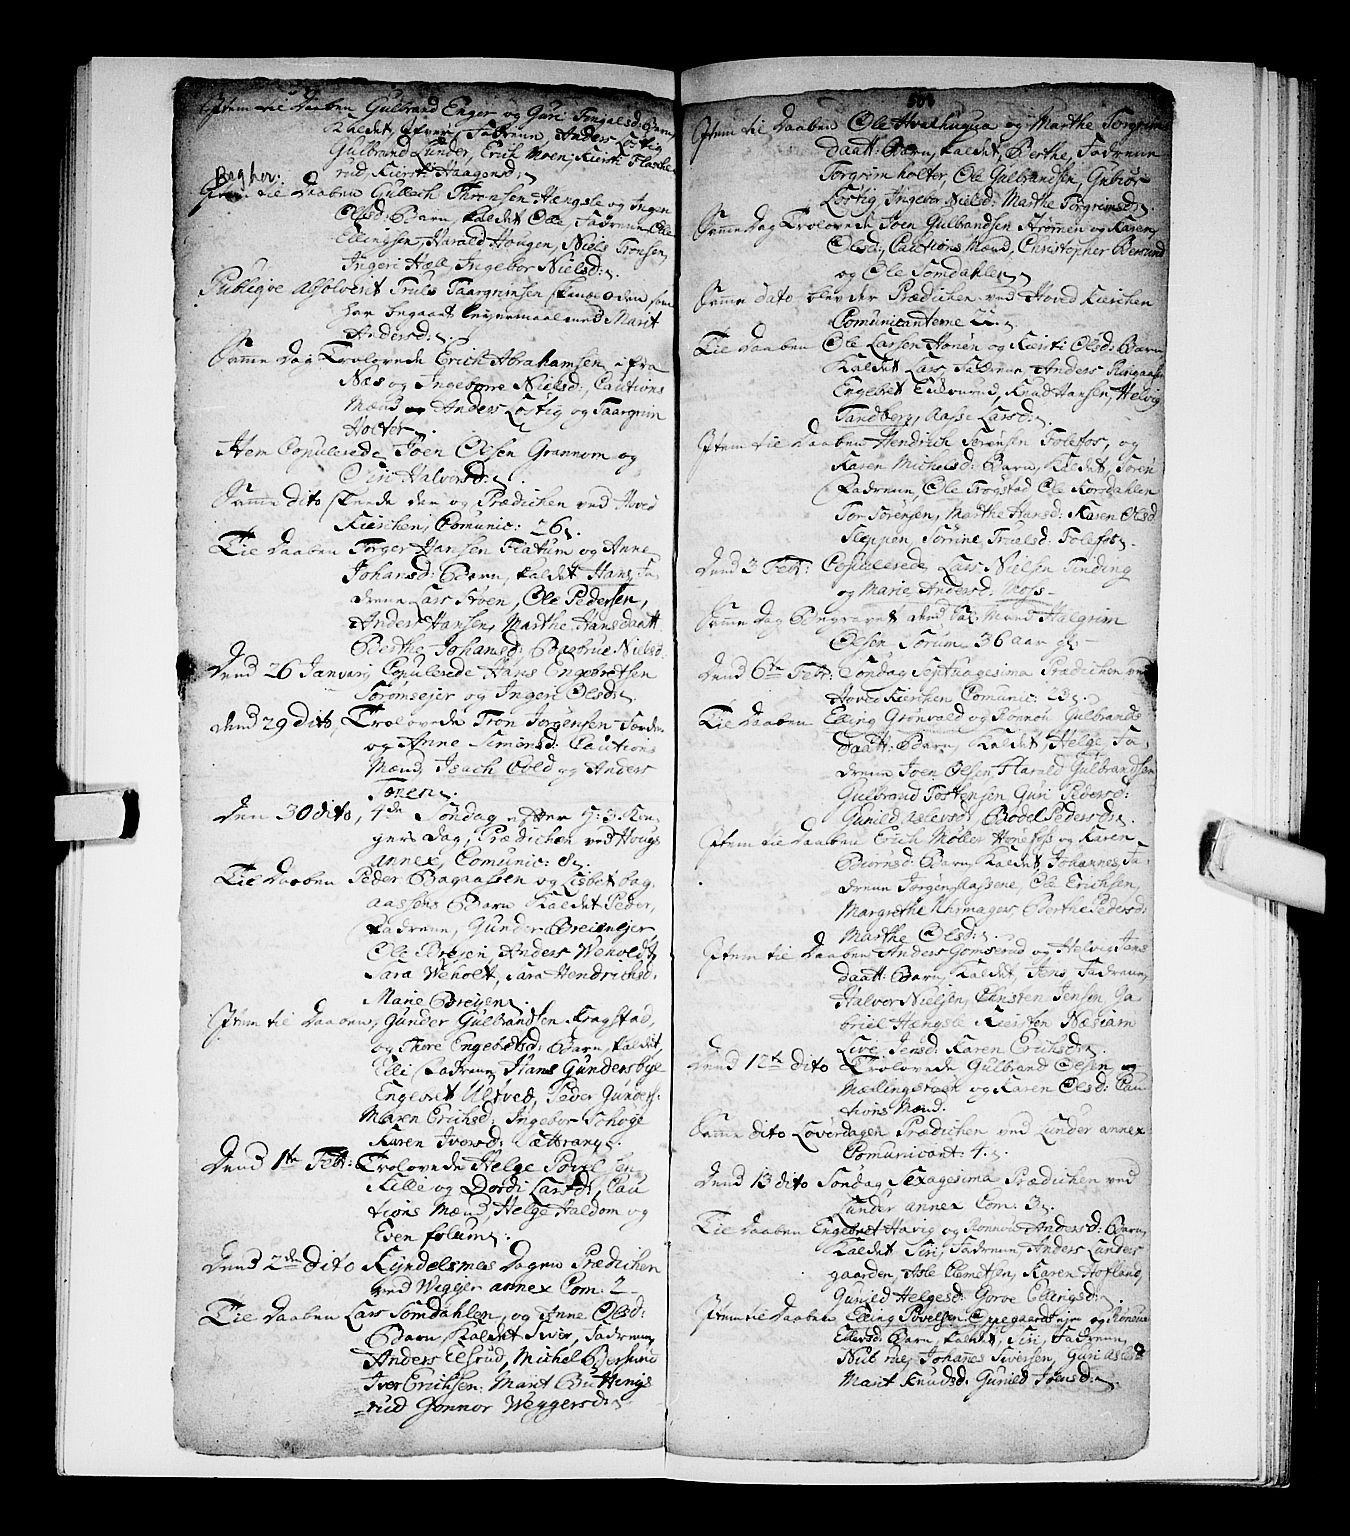 Item til Daaben Gulbrand Enger og Guri Ingalsd: Barn,
Kaldet Iver, Fadrene Anders Lostig
Gulbrand Lunder, Erich Moen, Kiersti Flaskerud
rud Kiersti Haagensd:
Begher.
Item til Daaben Gullech Thronsen Hængsle og Ingen
Olsd: Barn, kaldet Olle, Fadrene Ole
Ellingsen, Harald Hougen, Niels Tronsen,
Ingeri Hæl, Ingebor Nielsd:
Publiqve absolverit Truls Taargrimsen Skandeoden som
har begaaet leyermaal med Marit
Andersd:
Samme Dag Trolovede Erich Abrahamsen ifra
Næs og Ingeborre Nielsd: Cautions
Mænd Anders Lostig og Taargrim
Holter.
Item Copulerede Joen Olsen Grannom og
Siri Halvorsd:
Samme dito skeede den og Prædichen ved Hoved
Kierchen, Comunic: 26.
Til Daaben Torger Hansen Flatum og Anne
Johansd: Barn, kaldet Hans, Fa
drene Lars Moen, Ole Pedersen,
Anders Hansen, Marthe Hansdaatt
Berthe Johansd: Beathe Nielsd:
Dend 26 Januarij Copulerede Hans Engebretsen
Sørumsejer og Ingeri Olsd:
Dend 29 dito, Trolovede Tron Jørgensen
og Anne Simonsd: Cautions
Mænd, Isach Opeld og Anders
Toren.
Den 30 dito, 4de Søndag efter H: 3: Kon
gers Dag, Prædichen ved Hougs
annex, Comunic: 8.
Til Daaben Peder Bagaassen og Lisbet bag
aassens Barn Kaldet Peder,
Fadrene, Gunder Breiensejer
Ole Breien, Anders Weholdt,
Sara Weholt, Sara Hendrichsd:
Marie Breyen.
Item til Daaben, Gunder Gulbrandsen Kragstad,
og Thore Engebretsd: Barn, kaldet,
Elli Fadrene Hans Gundersbye
Engebret Ultved, Peder Gunders:
Maren Erichsd: Ingebor Schoge
Karen Iversd: Sættrang.
Dend 1te Febr: Trolovede Helge Povelsen
Killi og Dordi Larsd, Cau
tions Mænd, Helge Haldom og
Even folum.
Dend 2den Dito Kyndelsmes Dagen Prædichen
ved Wigger annex Com: 2
Til Daaben Lars Somdahlen, og Anne Olsd:
Barn, Kaldet Siver, Fadrene,
Anders Elsrud, Michel Bersund
Iver Erichsen: Marit Buttings
rud Gonnor Weggersd:
504
Item til Daaben Ole Hvalhugua og Marthe Torgrim
daatt: Barn, kaldet, Berthe, Fadrene
Torgrim holter, Ole Gulbrandsen, Gubiør
Lostig, Ingebor Nielsd: Marthe Torgrimsd:
Samme Dag Trolovede Joen Gulbrandsen Strømen og Karen
Olsd: Cautions Mænd, Christopher Bersund
og Ole Somdahlen
Samme dato blev der Prædichen ved Hoved Kierchen
Comunicanterne 22.
Til Daaben Ole Larsen Honen og Kiersti Olsd: Barn
Kaldet Lars, Fadrene, Anders Ringaasen
Engebret Eilverud, Knud Hansen, Helvig
Tandberg, Aasse Larsd:
Item til Daaben Hendrich Sørensen Follefos, og
Karen Michelsd: Barn, Kaldet, Soren
Fadrene, Ole Trøgstad Ole Korsdahlen
Tor Sørensen, Marthe Hansd: Karen Olsd
Kleppen, Sørine Trulsd: Follefos.
Dend 3 Febr: Copulerede Lars Nielsen Finding
og Marie Andersd: Moss
Samme Dag Begravet dend Sal: Mand Halgrim
Olsen Sørum 36 aar gl:
Dend 6te Febr: Søndag Septuagesima Prædichen ved
Hoved Kierchen Comunic: 23.
Til Daaben Elling Grønvold og Ronnou Gulbrands
daatt: Barn, Kaldet Helge, Fa
drene Joen Olsen, Harald Gulbrandsen
Gulbrand Tostensen, Guri Pedersd:
Gunild Asleersd Bodel Pedersd:
Item til Daaben Erich Møller Honefos og Karen
Biørnsd: Barn, Kaldet Johannes, Fa
drene Jørgen Classene, Ole Erichsen,
Margrethe Uhrmagers, Berthe Pedersd:
Marthe Olsd:
Item til Daaben Anders Gomserud og Helvig Jens
daatt: Barn, Kaldet, Jens, Fadrene,
Halvor Nielsen, Christen Jensen, Ga
briel Hængsle Kiersten Næsium
Live Jensd: Karen Erichsd.
Dend 12te dito Trolovede Gulbrand Olsen
Mælingstach og Karen Olsd: Cau
tions Mænd.
Samme dito Løverdagen Prædichen ved Lunder annex
Comunicant: 4.
Dend 13 dito Søndag Sexagesima Prædichen ved
Lunder annex Com: 3.
Til Daaben Engebret Havig og Ronnou Andersd: Barn,
Kaldet Siri, Fadrene, Anders Lunder
gaarden, Asle Clemetsen, Karen Hofland,
Gunild Helgesd: Gorve Ellingsd:
Item til Daaben Elling Povelsen Oppegaardsejer og Ronnou
Ellersd: Barn, kaldet, Siri, Fadrene,
Niub rue, Johanes Siversen, Guri Aslesd
Marit Knudsd: Gunild Joensd: